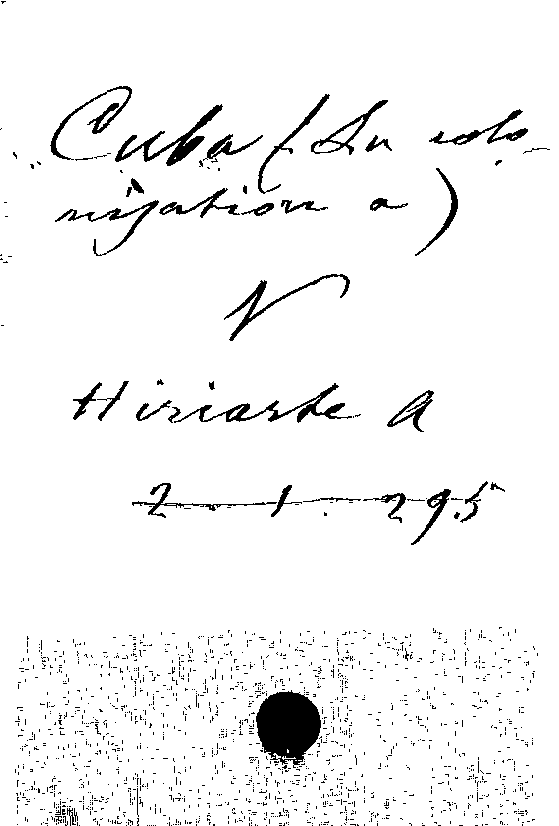 Cuba (La colo-
nisation a)
V
Hiriarte A
2-1.295